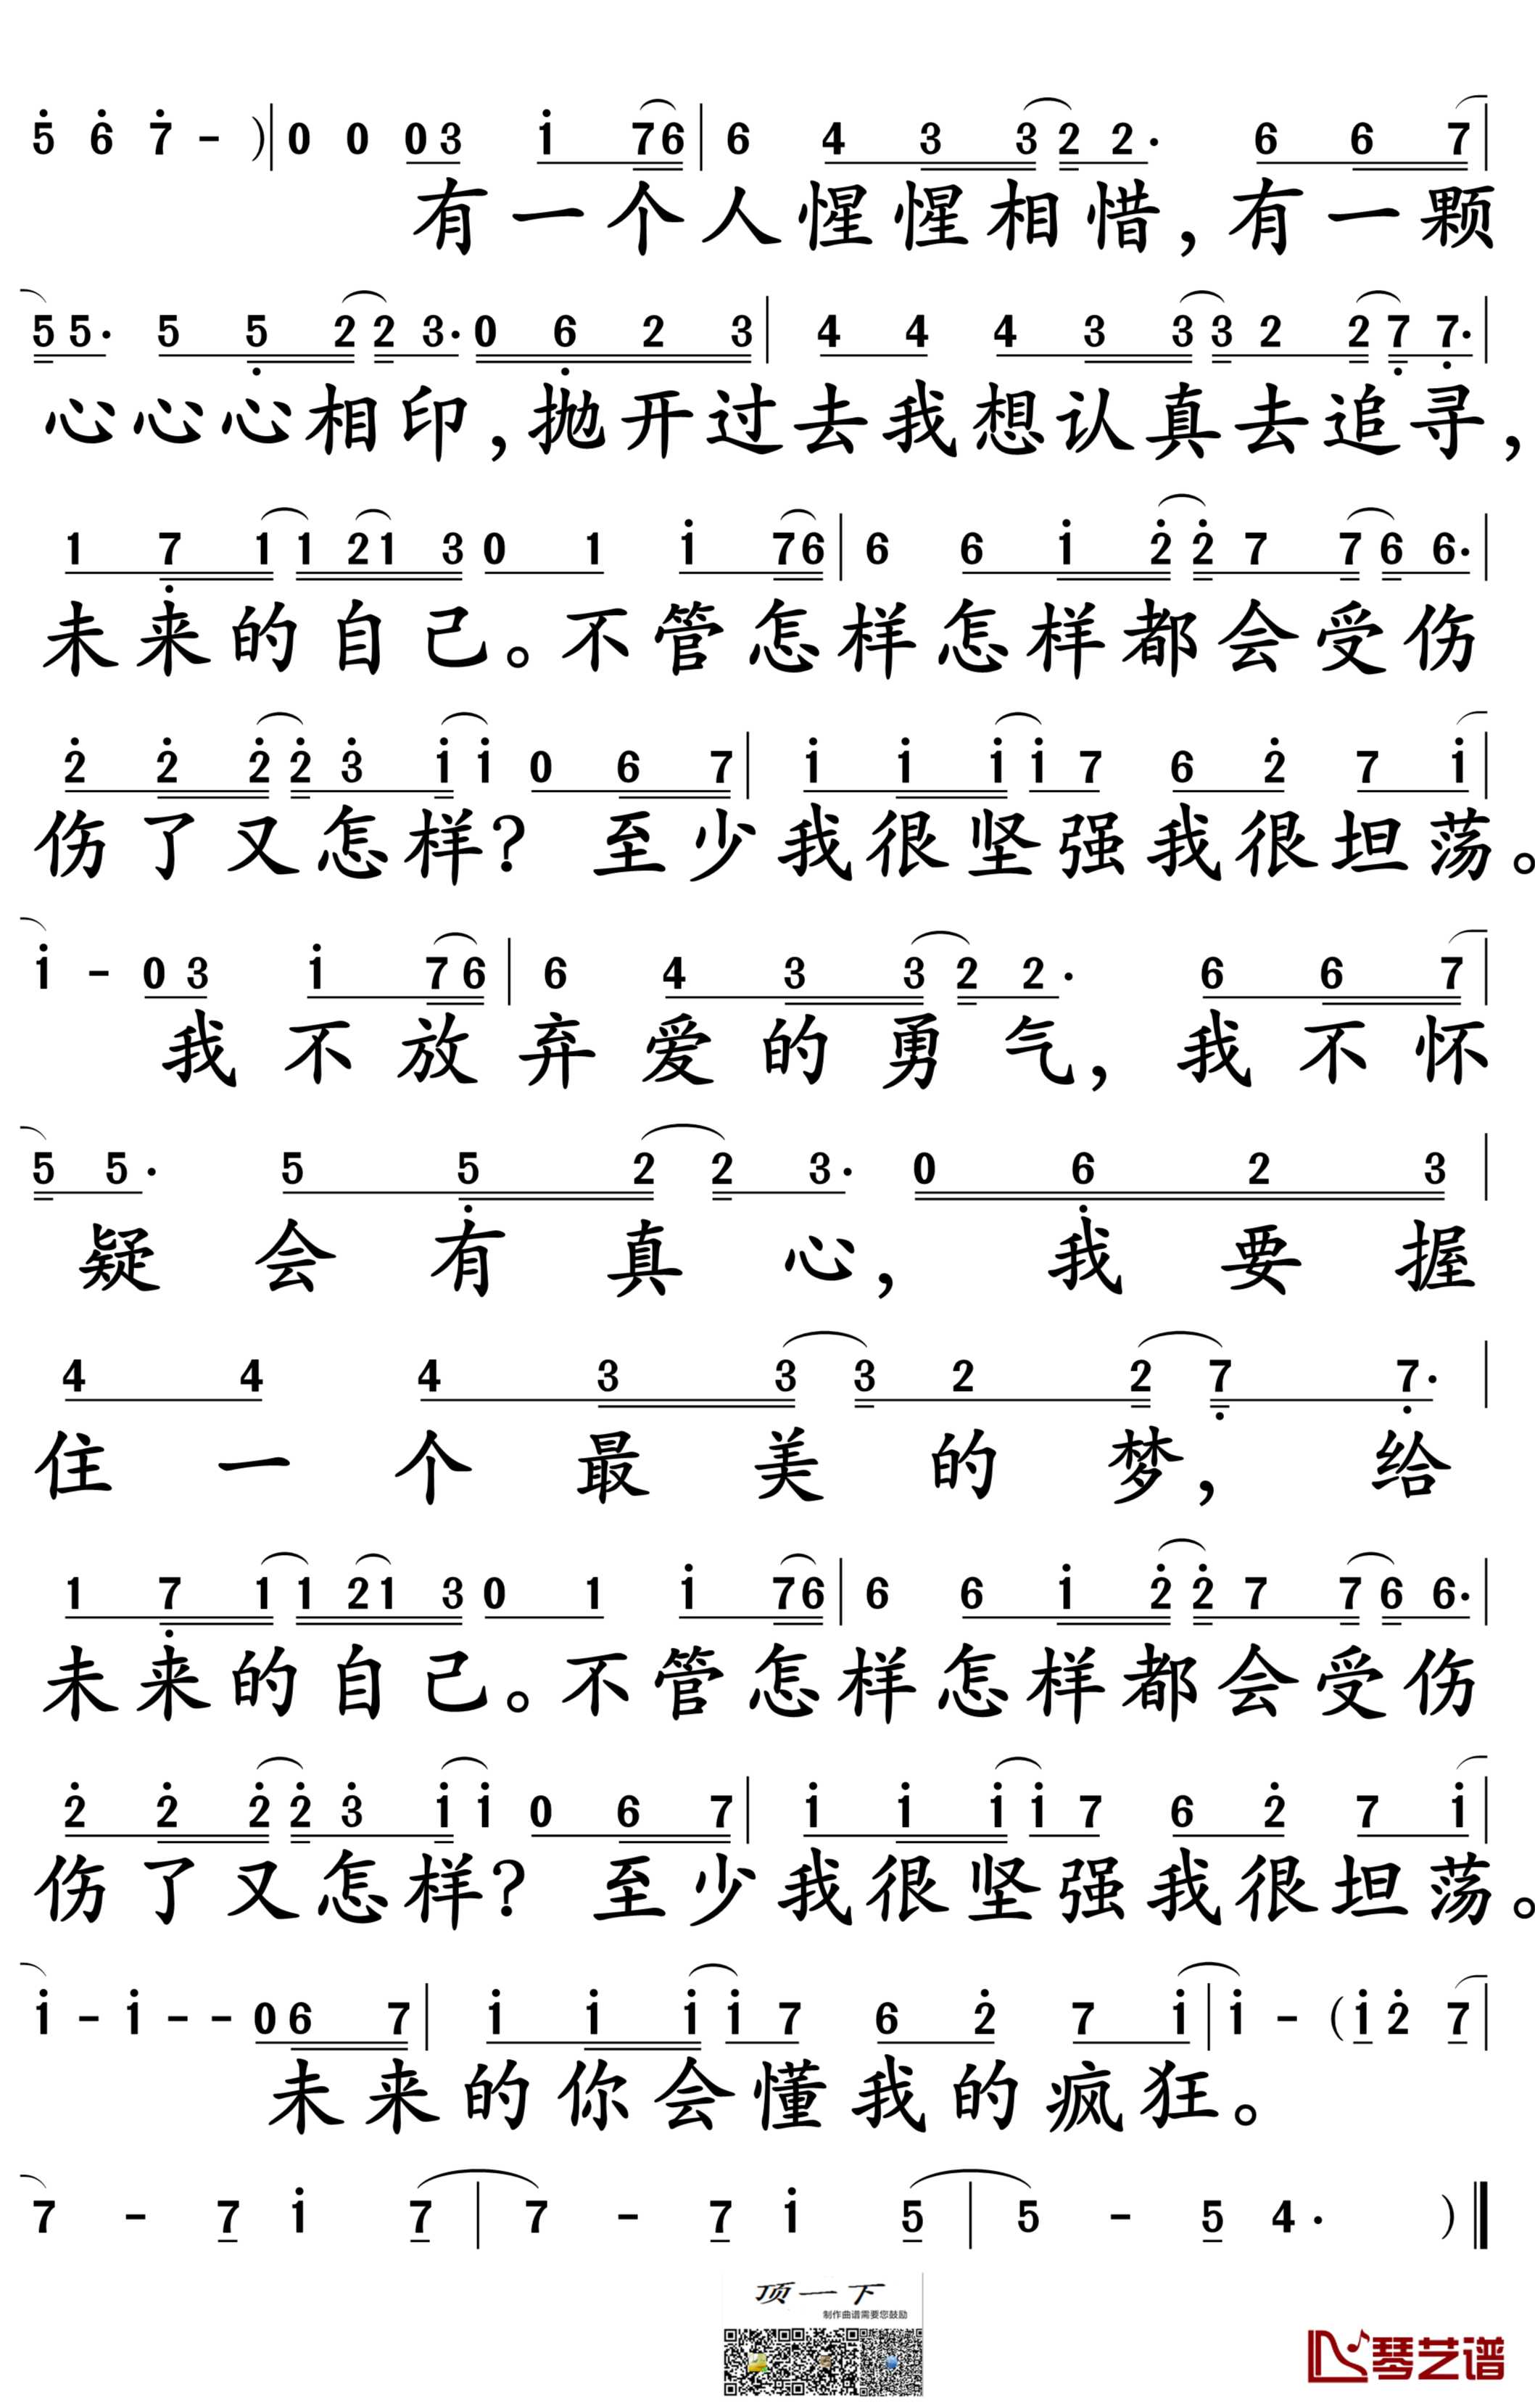 5̇ 6̇ 7̇ - )| 0 0 0 3 1̇ 7 6 | 6 4 3 3 2 2· 6 6 7 |
有一个人惺惺相惜，有一颗
5 5· 5 5̣ 2 2 3· 0 6̣ 2 3 | 4 4 4 3 3 3 2 2 7̣ 7̣· |
心心心相印，抛开过去我想认真去追寻，
1 7̣ 1 1 2 1 3 0 1 1̇ 7 6 | 6 6 1̇ 2̇ 2̇ 7 7 6 6· |
未来的自己。不管怎样怎样都会受伤
2̇ 2̇ 2̇ 2̇ 3̇ 1̇ 1̇ 0 6 7 | 1̇ 1̇ 1̇ 1̇ 7 6 2̇ 7 1̇ |
伤了又怎样？至少我很坚强我很坦荡。
1̇ - 0 3 1̇ 7 6 | 6 4 3 3 2 2· 6 6 7 |
我不放弃爱的勇气，我不怀
5 5· 5 5̣ 2 2 3· 0 6̣ 2 3 |
疑会有真心，我要握
4 4 4 3 3 3 2 2 7̣ 7̣· |
住一个最美的梦，给
1 7̣ 1 1 2 1 3 0 1 1̇ 7 6 | 6 6 1̇ 2̇ 2̇ 7 7 6 6· |
未来的自己。不管怎样怎样都会受伤
2̇ 2̇ 2̇ 2̇ 3̇ 1̇ 1̇ 0 6 7 | 1̇ 1̇ 1̇ 1̇ 7 6 2̇ 7 1̇ |
伤了又怎样？至少我很坚强我很坦荡。
1̇ - 1̇ - - 0 6 7 | 1̇ 1̇ 1̇ 1̇ 7 6 2̇ 7 1̇ | 1̇ - ( 1̇ 2̇ 7 |
未来的你会懂我的疯狂。
7 - 7 1̇ 7 | 7 - 7 1̇ 5 | 5 - 5 4· ) ‖
顶一下
制作曲谱需要您鼓励
琴艺谱